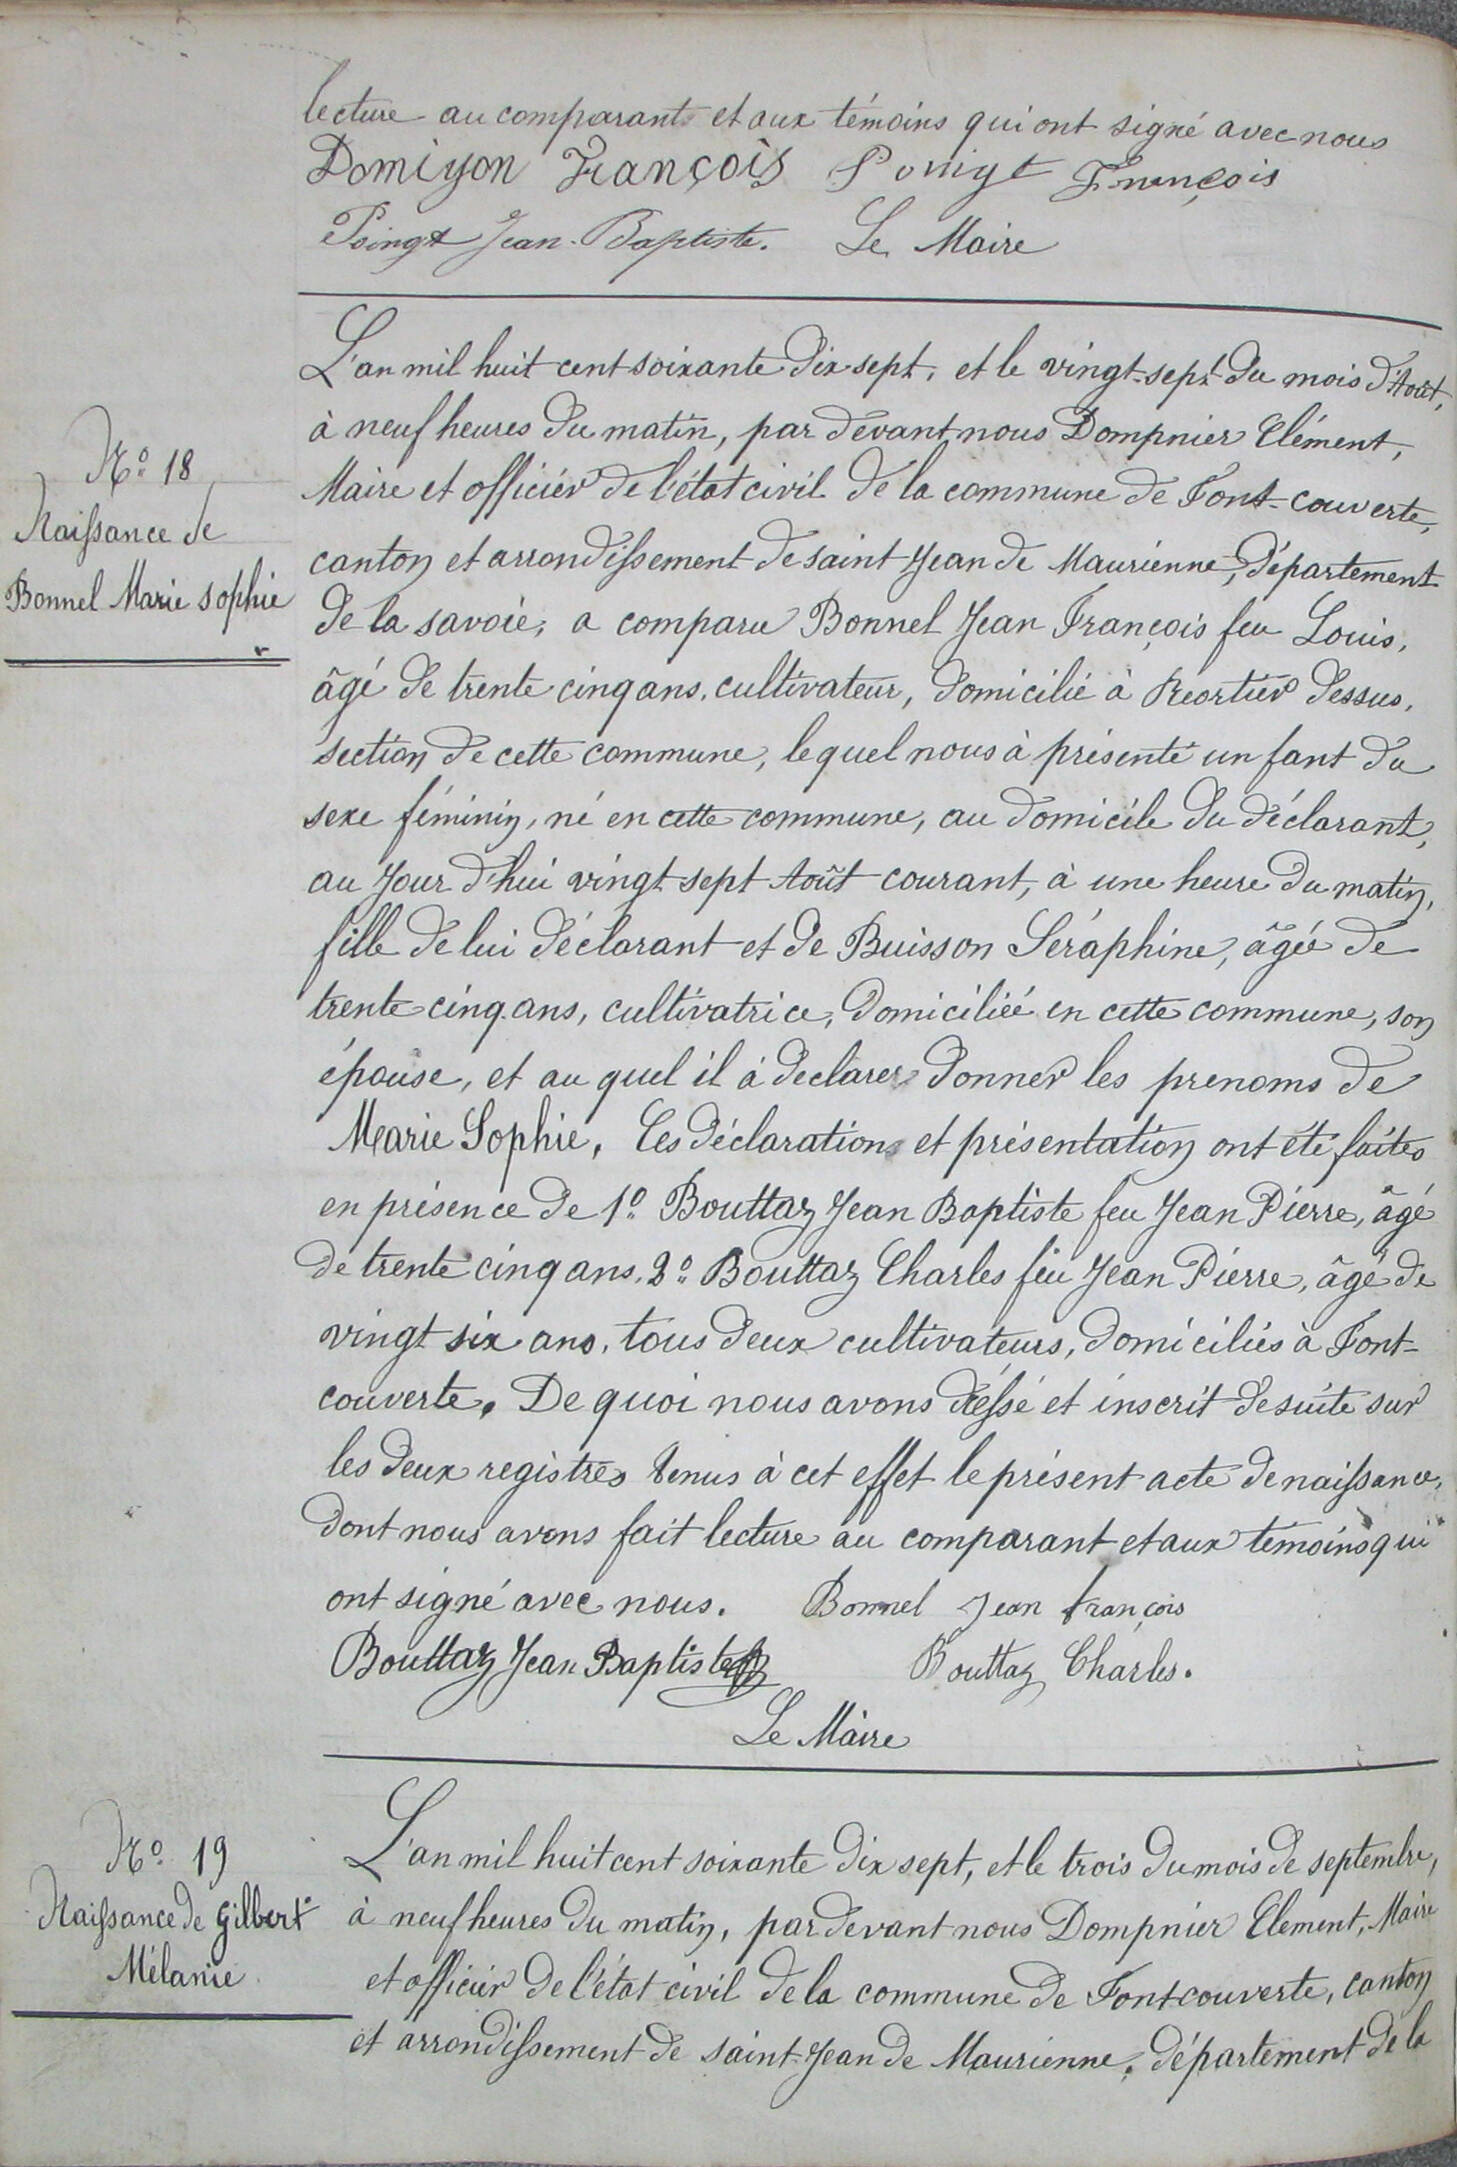 lecture au comparant et aux témoins qui ont signé avec nous
Domiyon François Poingt François
Poingt Jean-Baptiste. Le Maire
L'an mil huit cent soixante dix sept, et le vingt-sept du mois d'Août,
à neuf heures du matin, par devant nous Dompnier Clément,
Maire et officier de l'état civil de la commune de Font-couverte,
canton et arrondissement de saint Jean de Maurienne, département
de la savoie, a comparu Bonnel Jean François feu Louis,
âgé de trente cinq ans, cultivateur, domicilié à Reortier dessus,
section de cette commune, lequel nous à présenté un fant du
sexe féminin, né en cette commune, au domicile du déclarant,
au jour d'hui vingt sept Août courant, à une heure du matin,
fille de lui déclarant et de Buisson Séraphine, âgée de
trente cinq ans, cultivatrice, domiciliée en cette commune, son
épouse, et au quel il à declarer donner les prenoms de
Marie Sophie. Ces déclarations et présentation ont été faites
en présence de 1º Bouttaz Jean Baptiste feu Jean Pierre, âgé
de trente cinq ans. 2º Bouttaz Charles feu Jean Pierre, âgé de
vingt six ans, tous deux cultivateurs, domiciliés à Font-
couverte. De quoi nous avons dressé et inscrit de suite sur
les deux registres tenus à cet effet le présent acte de naissance,
dont nous avons fait lecture au comparant et aux témoins qui
ont signé avec nous. Bonnel Jean françois
Bouttaz Jean Baptiste Bouttaz Charles.
Le Maire
Nº 18
Naissance de
Bonnel Marie sophie
L'an mil huit cent soixante dix sept, et le trois du mois de septembre,
à neuf heures du matin, par devant nous Dompnier Clement, Maire
et officier de l'état civil de la commune de Fontcouverte, canton
et arrondissement de saint-Jean de Maurienne, département de la
Nº 19
Naissance de Gilbert
Mélanie